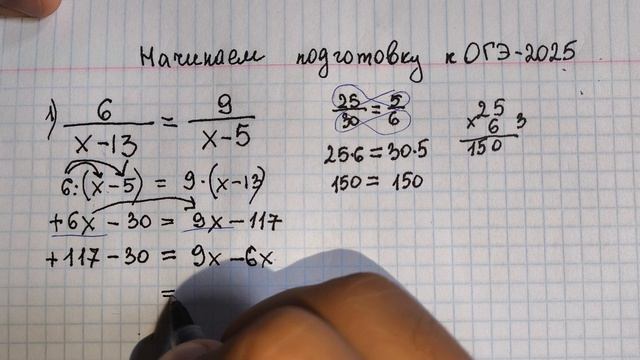 Начинаем подготовку к ОГЭ-2025
1) 6/(x-13) = 9/(x-5)
6·(x-5) = 9·(x-13)
+6x - 30 = 9x - 117
+117 - 30 = 9x - 6x
=
25/30 = 5/6
25·6 = 30·5
150 = 150
25
x 6 3
150